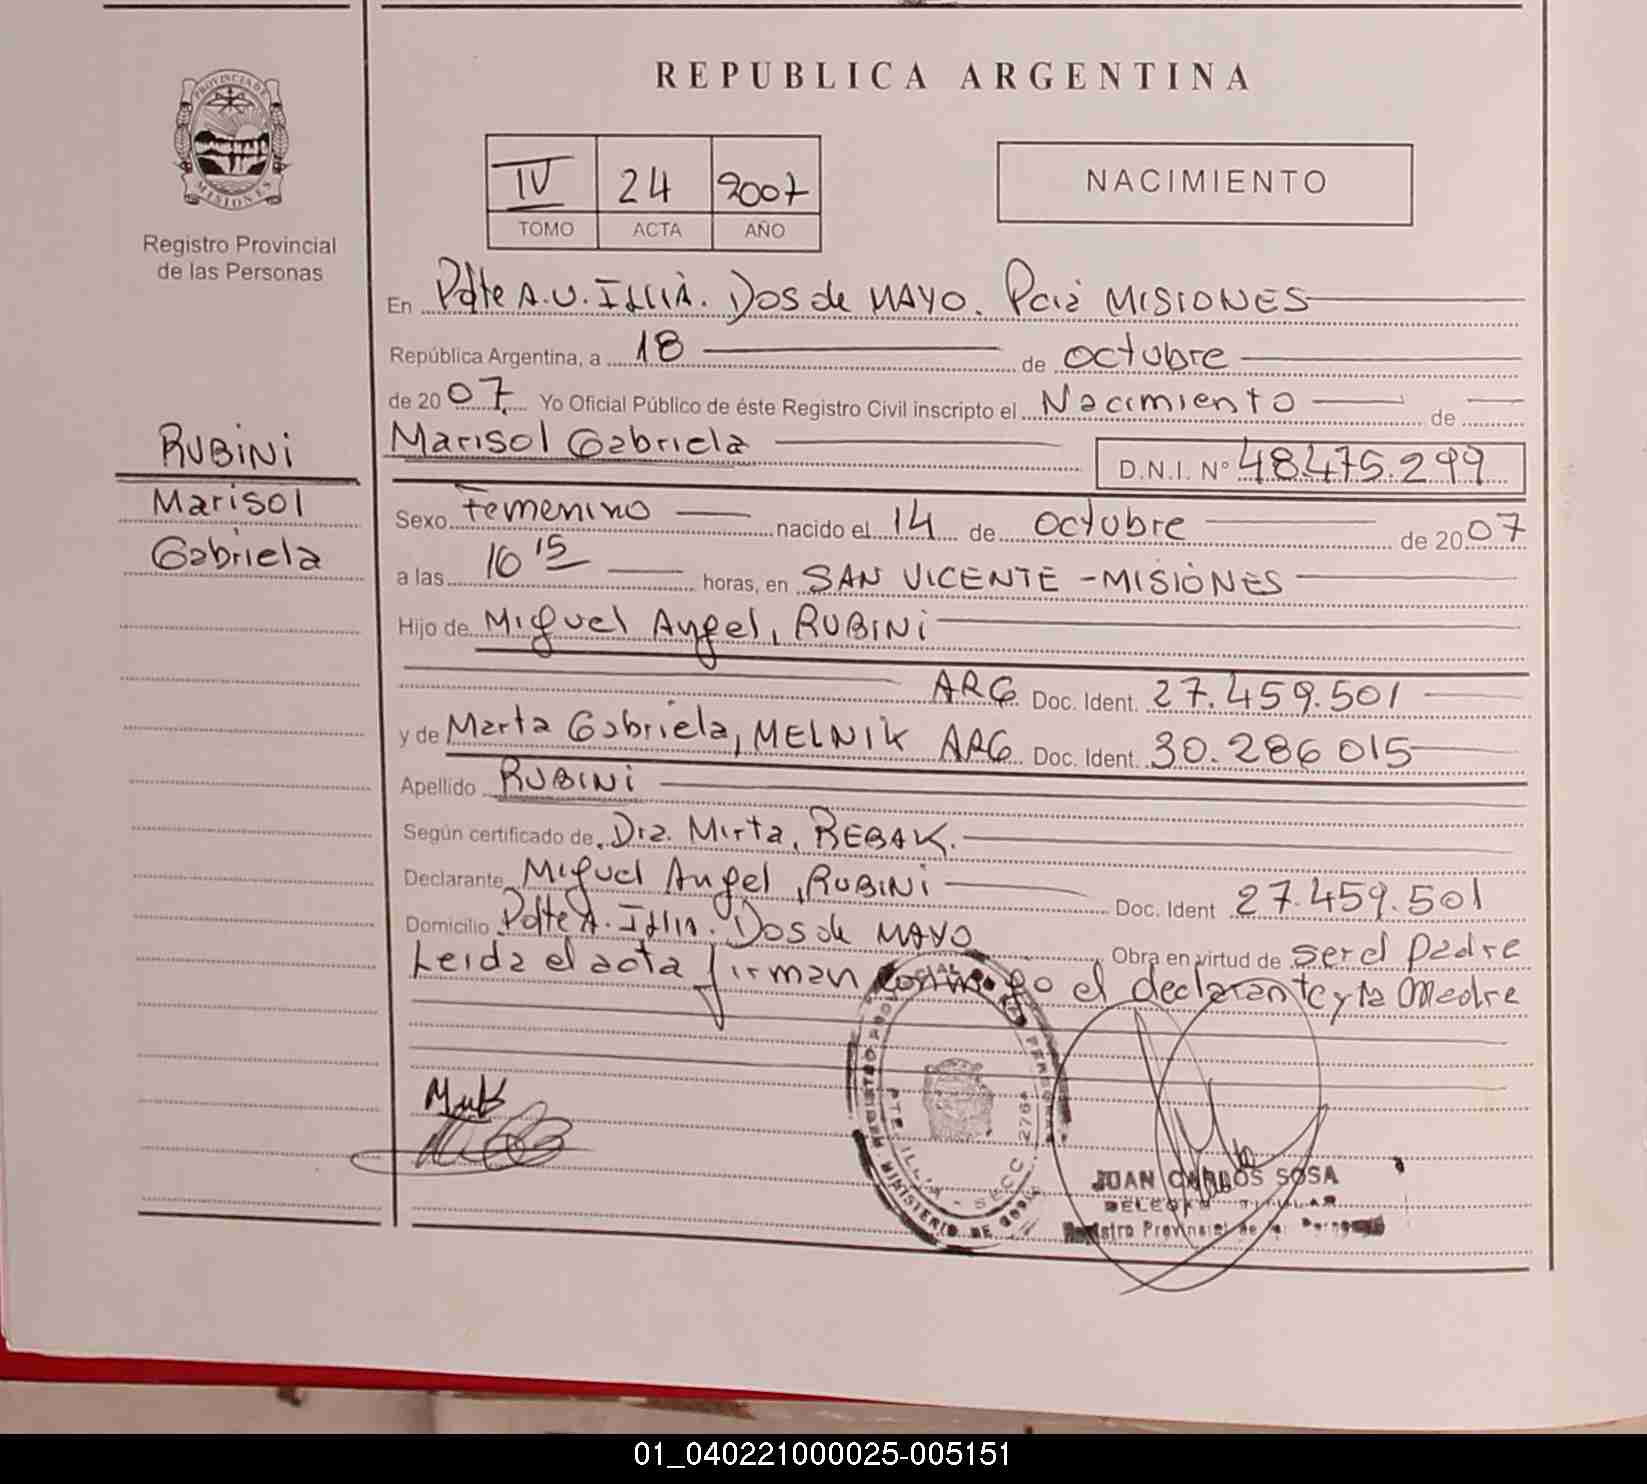 REPUBLICA ARGENTINA
PROVINCIA DE
MISIONES
Registro Provincial
de las Personas
IV 24 2007
TOMO ACTA AÑO
NACIMIENTO
En Pdte A.U. ILLIA. Dos de MAYO. Pcia MISIONES
República Argentina, a 18 de octubre
de 2007 Yo Oficial Público de éste Registro Civil inscripto el Nacimiento de
Marisol Gabriela D.N.I. Nº 48.475.299
RUBINI
Marisol
Gabriela
Sexo Femenino nacido el 14 de octubre de 2007
a las 16 15 horas, en SAN VICENTE - MISIONES
Hijo de Miguel Angel, RUBINI
ARG Doc. Ident. 27.459.501
y de Marta Gabriela, MELNIK ARG Doc. Ident. 30.286 015
Apellido RUBINI
Según certificado de Dra. Mirta, REBAK.
Declarante Miguel Angel, RUBINI Doc. Ident 27.459.501
Domicilio Pdte A. Illia. Dos de MAYO Obra en virtud de ser el padre
Leida el acta firman conmigo el declarante y la Madre
PTE. ILLIA - SECC 2764
MINISTERIO DE GOB
JUAN CARLOS SOSA
DELEGADO TITULAR
Registro Provincial de las Personas
01_040221000025-005151